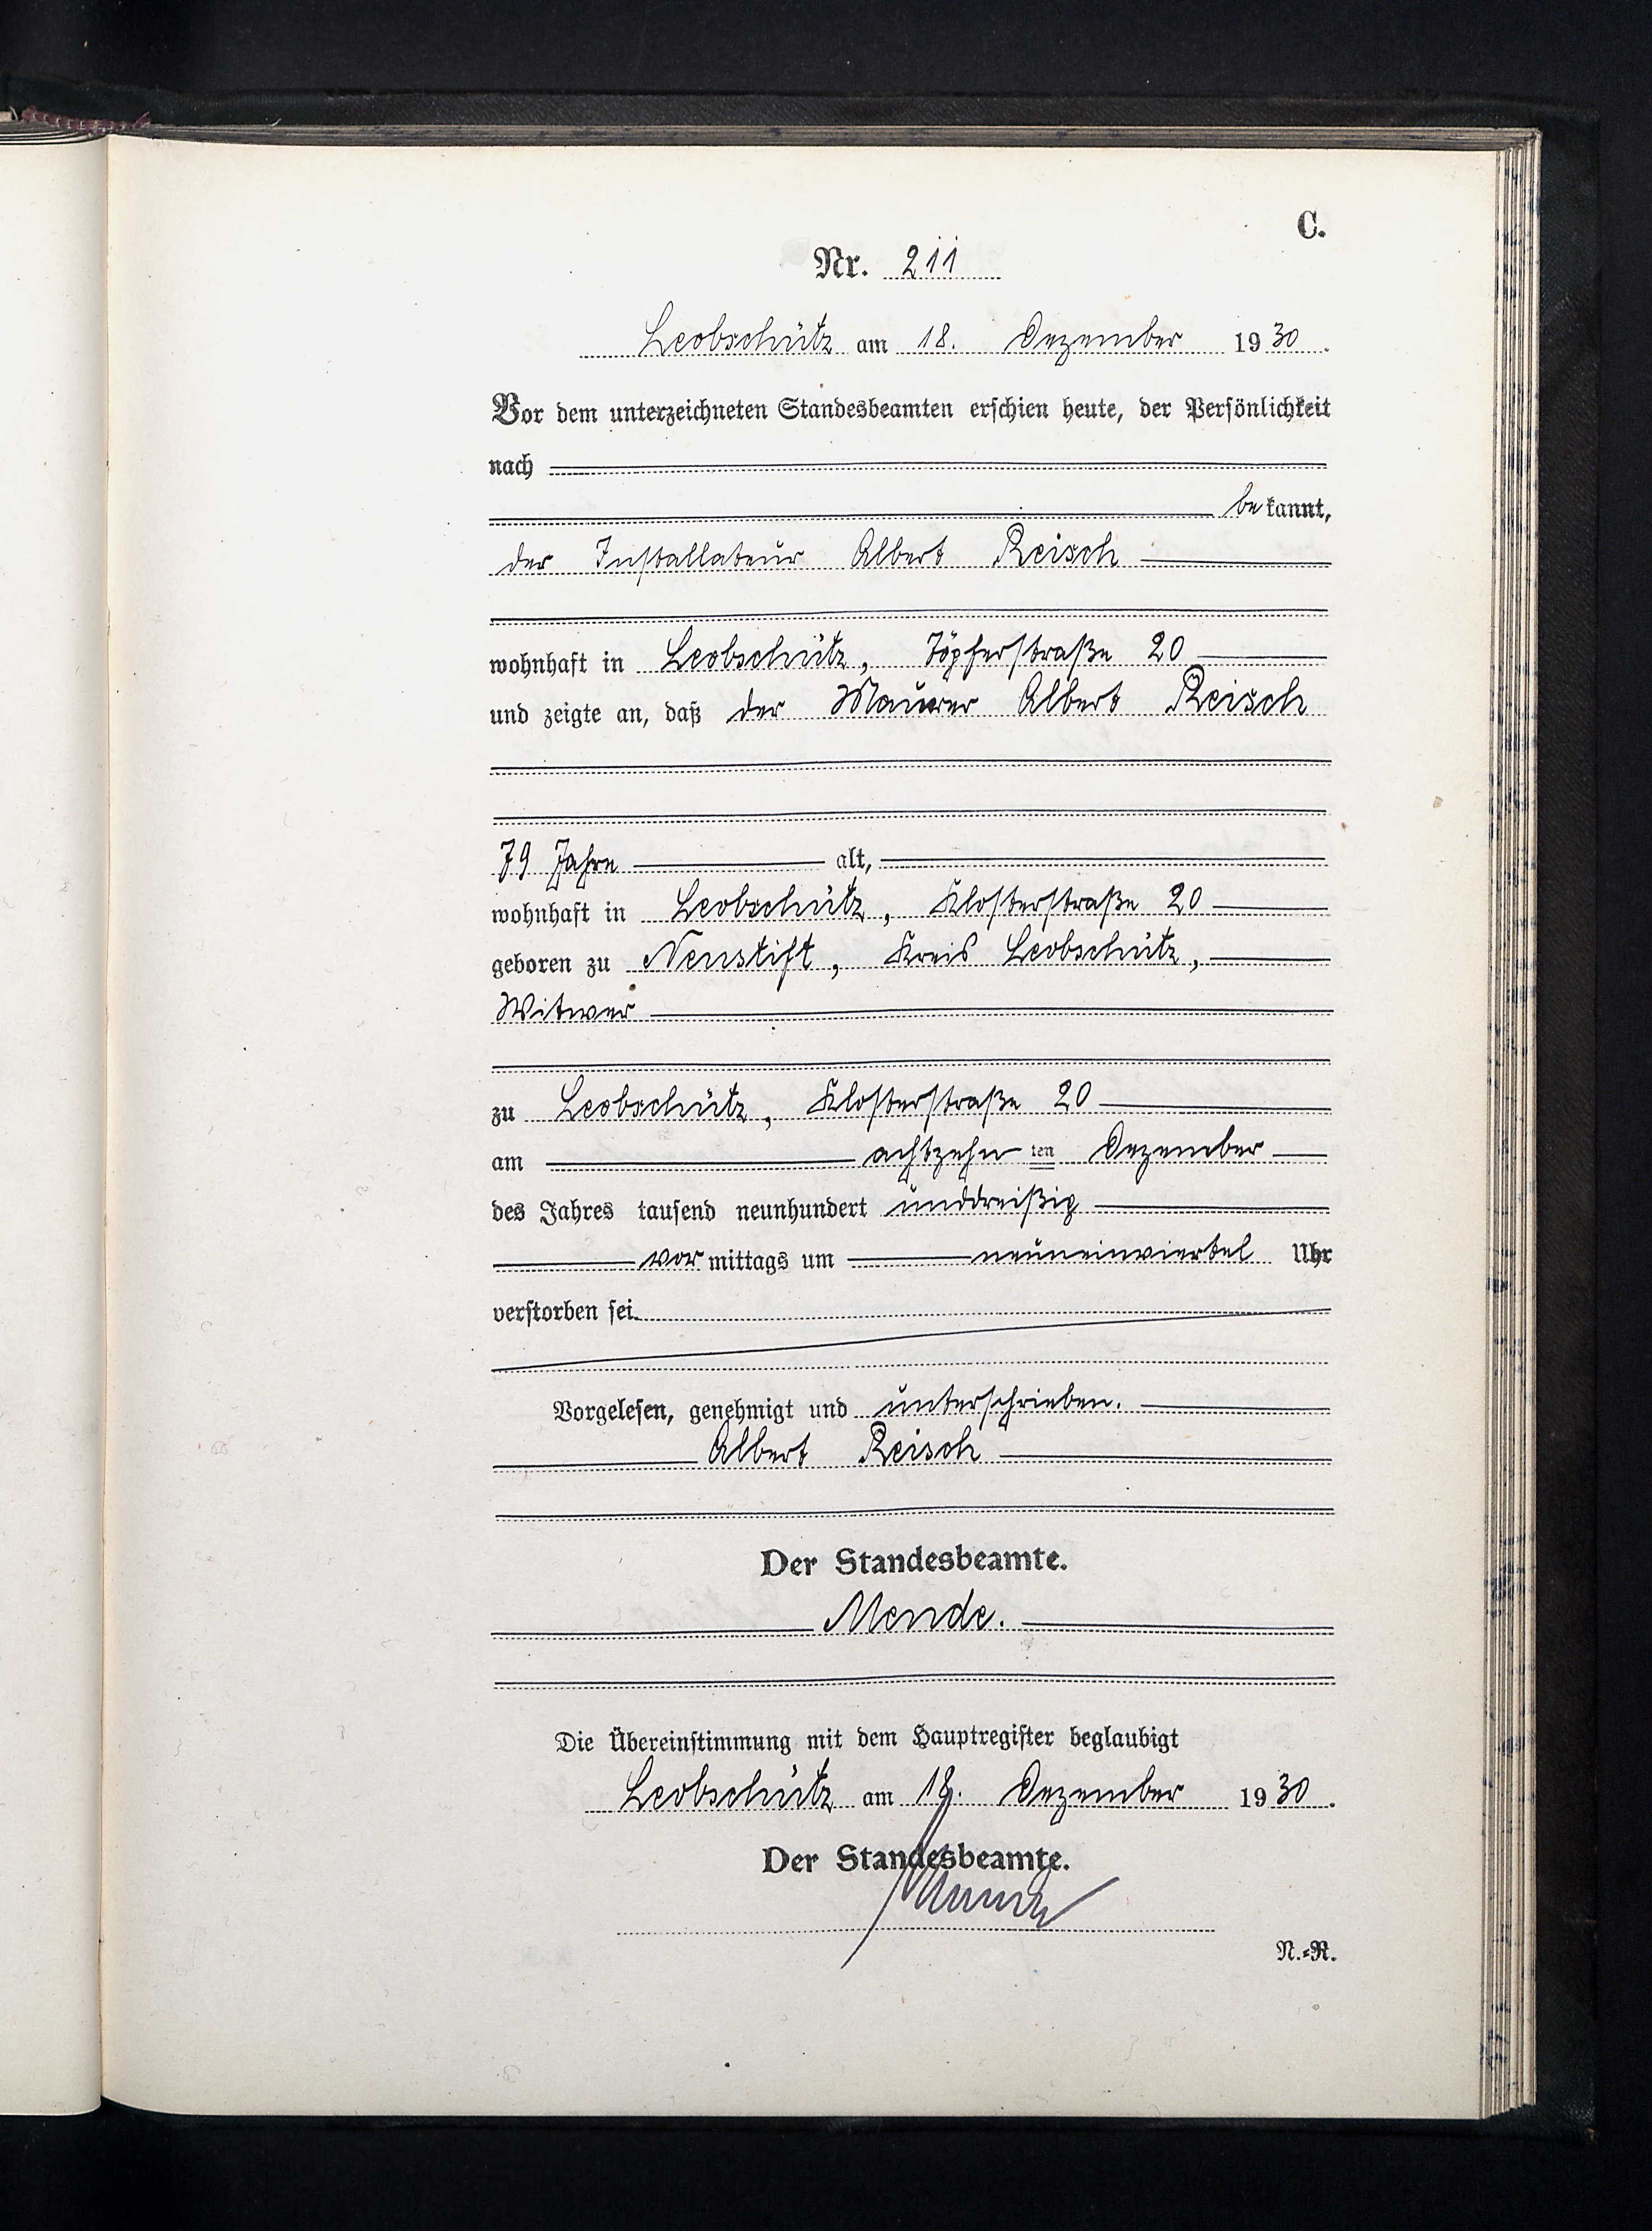 C.
Nr. 211
Leobschütz am 18. Dezember 1930.
Vor dem unterzeichneten Standesbeamten erschien heute, der Persönlichkeit
nach
bekannt,
der Installateur Albert Reisch
wohnhaft in Leobschütz, Töpferstraße 20
und zeigte an, daß der Maurer Albert Reisch
79 Jahre alt,
wohnhaft in Leobschütz, Klosterstraße 20
geboren zu Neustift, Kreis Leobschütz,
Witwer
zu Leobschütz, Klosterstraße 20
am achtzehnten Dezember
des Jahres tausend neunhundert unddreißig
vormittags um neuneinviertel Uhr
verstorben sei.
Vorgelesen, genehmigt und unterschrieben.
Albert Reisch
Der Standesbeamte.
Mende.
Die Übereinstimmung mit dem Hauptregister beglaubigt
Leobschütz am 18. Dezember 1930.
Der Standesbeamte.
Mende
N.=R.